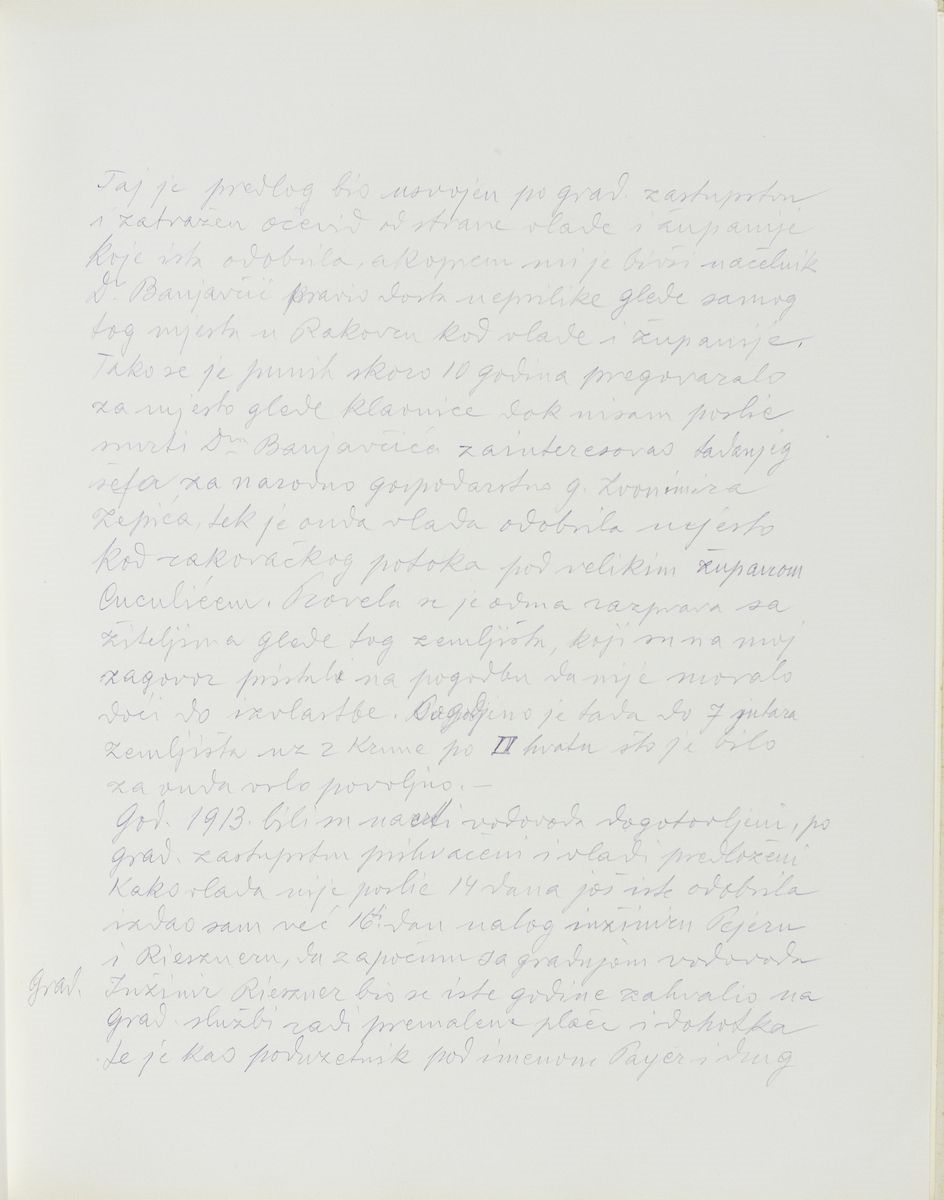 Taj je predlog bio usvojen po grad. zastupstvu
i zatražen očevid od strane vlade i županije
koje ista odobrila, a kojem mi je bivši načelnik
Dr. Banjavčić pravio dosta neprilike glede samog
tog mjesta u Rakovcu kod vlade i županije.
Tako se je punih skoro 10 godina pregovaralo
za mjesto glede klaonice dok nisam poslie
smrti Dra Banjavčića zainteresovao tadanjeg
šefa za narodno gospodarstvo g. Zvonimira
Žepića, tek je onda vlada odobrila mjesto
kod rakovačkog potoka pod velikim županom
Cuculićem. Provela se je odma razprava sa
žiteljima glede tog zemljišta, koji su na moj
zagovor pristali na pogodbu da nije moralo
doći do izvlastbe. Pogodjeno je tada do 7 jutara
zemljišta uz 2 Krune po □ hvatu što je bilo
za onda vrlo povoljno. —
God. 1913. bili su nacrti vodovoda dogotovljeni, po
grad. zastupstvu prihvaćeni i vladi predloženi
Kako vlada nije poslie 14 dana još iste odobrila
izdao sam već 16ti dan nalog inžiniru Pejeru
i Riesneru, da započmu sa gradnjom vodovoda
Grad. Inžinir Riesner bio se iste godine zahvalio na
grad. službi radi premalene plaće i dohotka
te je kao poduzetnik pod imenom Payer i drug